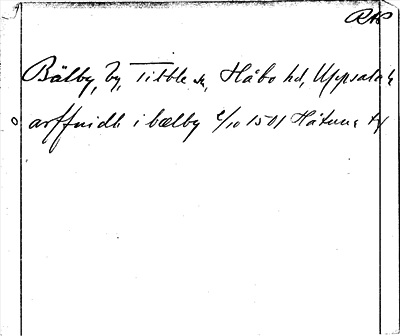 RAP
Bälby, by, Tibble sn, Håbo hd, Uppsala l
arffuidh i bælby 6/10 1501 Håtuna ty